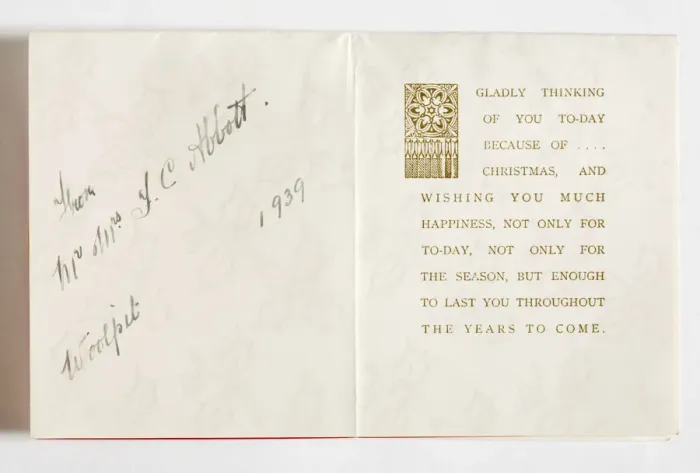 From
Mr Mrs J. C Abbott.
1939
Woolpit
GLADLY THINKING
OF YOU TO-DAY
BECAUSE OF ....
CHRISTMAS, AND
WISHING YOU MUCH
HAPPINESS, NOT ONLY FOR
TO-DAY, NOT ONLY FOR
THE SEASON, BUT ENOUGH
TO LAST YOU THROUGHOUT
THE YEARS TO COME.